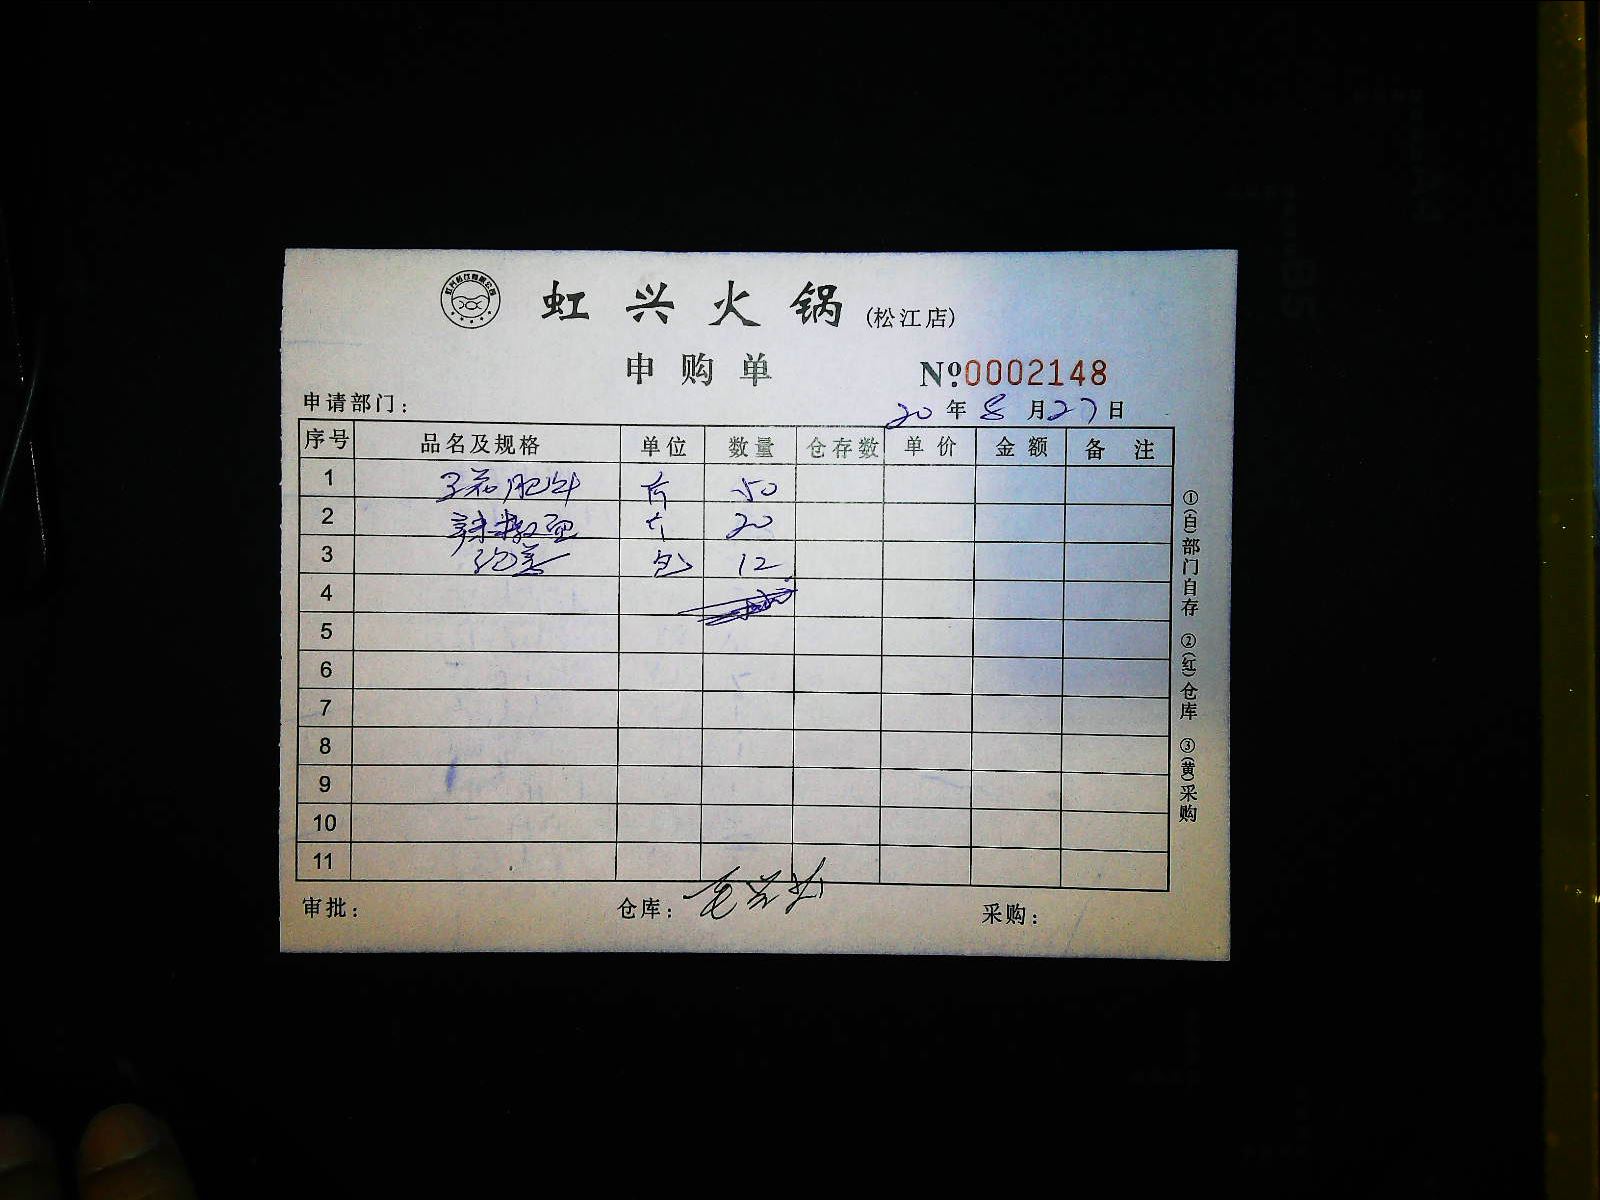 虹兴火锅(松江店)
申购单 Nº:0002148
申请部门:
20年8月27日
序号 品名及规格 单位 数量 仓存数 单价 金额 备注
1 肥牛 50
2 辣椒面 个 20
3 包 12
4
5
6
7
8
9
10
11
审批: 仓库: 采购:
①(白)部门自存 ②(红)仓库 ③(黄)采购